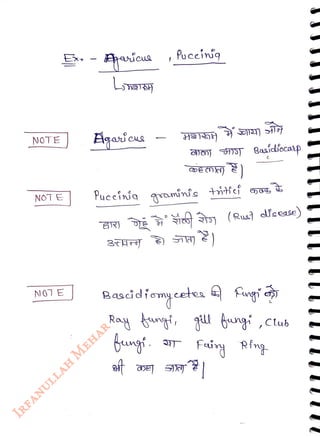 Ex. - Agaricus , Puccinia
मशरूम
NOTE Agaricus - मशरूम में खाया जाने
वाला भाग Basidiocarp
कहलाता है |
NOTE Puccinia graminis tritici कवक के
द्वारा गेहू में रोली रोग (Rust disease)
उत्पन्न हो जाता है |
NOTE Bascidiomycetes की Fungi को
Ray fungi, gill fungi , Club
fungi. या Fairy Ring
भी कहा जाता है |
IRFANULLAH MEHAR